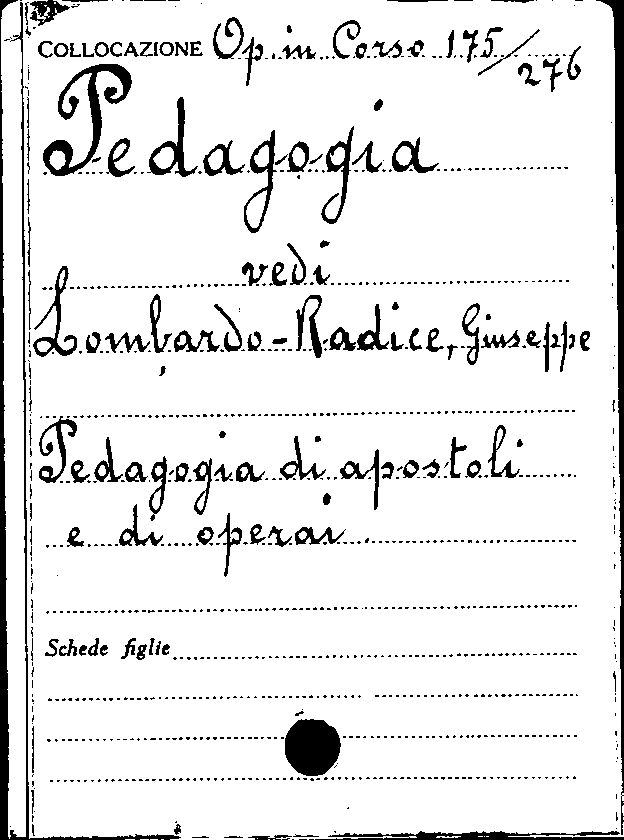 COLLOCAZIONE Op. in Corso 175/276
Pedagogia
vedi
Lombardo-Radice, Giuseppe
Pedagogia di apostoli
e di operai.
Schede figlie